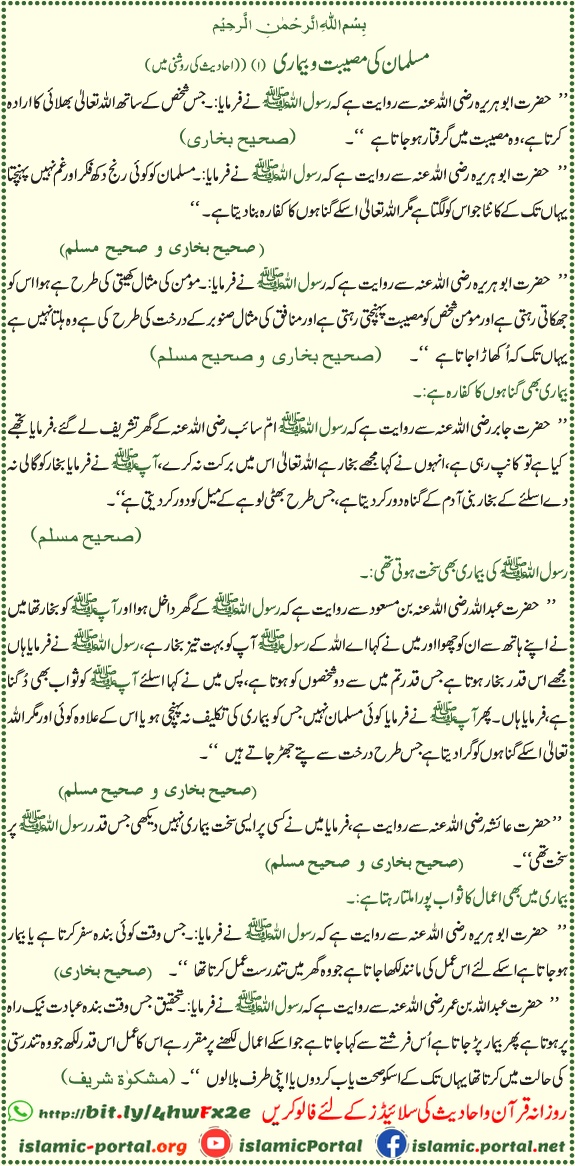 بِسْمِ اللهِ الرَّحْمٰنِ الرَّحِيْمِ
مسلمان کی مصیبت و بیماری (۱) ((احادیث کی روشنی میں)
’’ حضرت ابو ہریرہ رضی اللہ عنہ سے روایت ہے کہ رسول اللہ ﷺ نے فرمایا:۔ جس شخص کے ساتھ اللہ تعالیٰ بھلائی کا ارادہ
کرتا ہے، وہ مصیبت میں گرفتار ہو جاتا ہے ‘‘۔ (صحیح بخاری)
’’ حضرت ابو ہریرہ رضی اللہ عنہ سے روایت ہے کہ رسول اللہ ﷺ نے فرمایا:۔ مسلمان کو کوئی رنج دکھ فکر اور غم نہیں پہنچتا
یہاں تک کے کانٹا جو اس کو لگتا ہے مگر اللہ تعالیٰ اسکے گناہوں کا کفارہ بنا دیتا ہے۔ ‘‘
(صحیح بخاری و صحیح مسلم)
’’ حضرت ابو ہریرہ رضی اللہ عنہ سے روایت ہے کہ رسول اللہ ﷺ نے فرمایا:۔ مومن کی مثال کھیتی کی طرح ہے ہوا اس کو
جھکاتی رہتی ہے اور مومن شخص کو مصیبت پہنچتی رہتی ہے اور منافق کی مثال صنوبر کے درخت کی طرح کی ہے وہ ہلتا نہیں ہے
یہاں تک کہ اُکھاڑا جاتا ہے ‘‘۔ (صحیح بخاری و صحیح مسلم)
بیماری بھی گناہوں کا کفارہ ہے:۔
’’ حضرت جابر رضی اللہ عنہ سے روایت ہے کہ رسول اللہ ﷺ امّ سائب رضی اللہ عنہ کے گھر تشریف لے گئے، فرمایا تجھے
کیا ہے تو کانپ رہی ہے، انہوں نے کہا مجھے بخار ہے اللہ تعالیٰ اس میں برکت نہ کرے، آپ ﷺ نے فرمایا بخار کو گالی نہ
دے اسلئے کے بخار بنی آدم کے گناہ دور کر دیتا ہے، جس طرح بھٹی لوہے کے میل کو دور کر دیتی ہے‘‘۔
(صحیح مسلم)
رسول اللہ ﷺ کی بیماری بھی سخت ہوتی تھی:۔
’’ حضرت عبد اللہ رضی اللہ عنہ بن مسعود سے روایت ہے کہ رسول اللہ ﷺ کے گھر داخل ہوا اور آپ ﷺ کو بخار تھا میں
نے اپنے ہاتھ سے ان کو چھوا اور میں نے کہا اے اللہ کے رسول ﷺ آپ کو بہت تیز بخار ہے، رسول اللہ ﷺ نے فرمایا ہاں
مجھے اس قدر بخار ہوتا ہے جس قدر تم میں سے دو شخصوں کو ہوتا ہے، پس میں نے کہا اسلئے آپ ﷺ کو ثواب بھی دُگنا
ہے، فرمایا ہاں۔ پھر آپ ﷺ نے فرمایا کوئی مسلمان نہیں جس کو بیماری کی تکلیف نہ پہنچی ہو یا اس کے علاوہ کوئی اور مگر اللہ
تعالیٰ اسکے گناہوں کو گرا دیتا ہے جس طرح درخت سے پتے جھڑ جاتے ہیں ‘‘۔
(صحیح بخاری و صحیح مسلم)
’’حضرت عائشہ رضی اللہ عنہ سے روایت ہے، فرمایا میں نے کسی پر ایسی سخت بیماری نہیں دیکھی جس قدر رسول اللہ ﷺ پر
سخت تھی‘‘۔ (صحیح بخاری و صحیح مسلم)
بیماری میں بھی اعمال کا ثواب پورا ملتا رہتا ہے:۔
’’ حضرت ابو ہریرہ رضی اللہ عنہ سے روایت ہے کہ رسول اللہ ﷺ نے فرمایا:۔ جس وقت کوئی بندہ سفر کرتا ہے یا بیمار
ہو جاتا ہے اسکے لئے اس عمل کی مانند لکھا جاتا ہے جو وہ گھر میں تندرست عمل کرتا تھا ‘‘۔ (صحیح بخاری)
’’ حضرت عبد اللہ بن عمر رضی اللہ عنہ سے روایت ہے کہ رسول اللہ ﷺ نے فرمایا:۔ تحقیق جس وقت بندہ عبادت نیک راہ
پر ہوتا ہے پھر بیمار پڑ جاتا ہے اُس فرشتے سے کہا جاتا ہے جو اسکے اعمال لکھنے پر مقرر ہے اس کا عمل اس قدر لکھ جو وہ تندرستی
کی حالت میں کرتا تھا یہاں تک کے اسکو صحت یاب کردوں یا اپنی طرف بلا لوں ‘‘۔ (مشکوٰۃ شریف)
روزانہ قرآن و احادیث کی سلائیڈز کے لئے فالو کریں http://bit.ly/4hwFx2e
islamic-portal.org islamicPortal islamic.portal.net